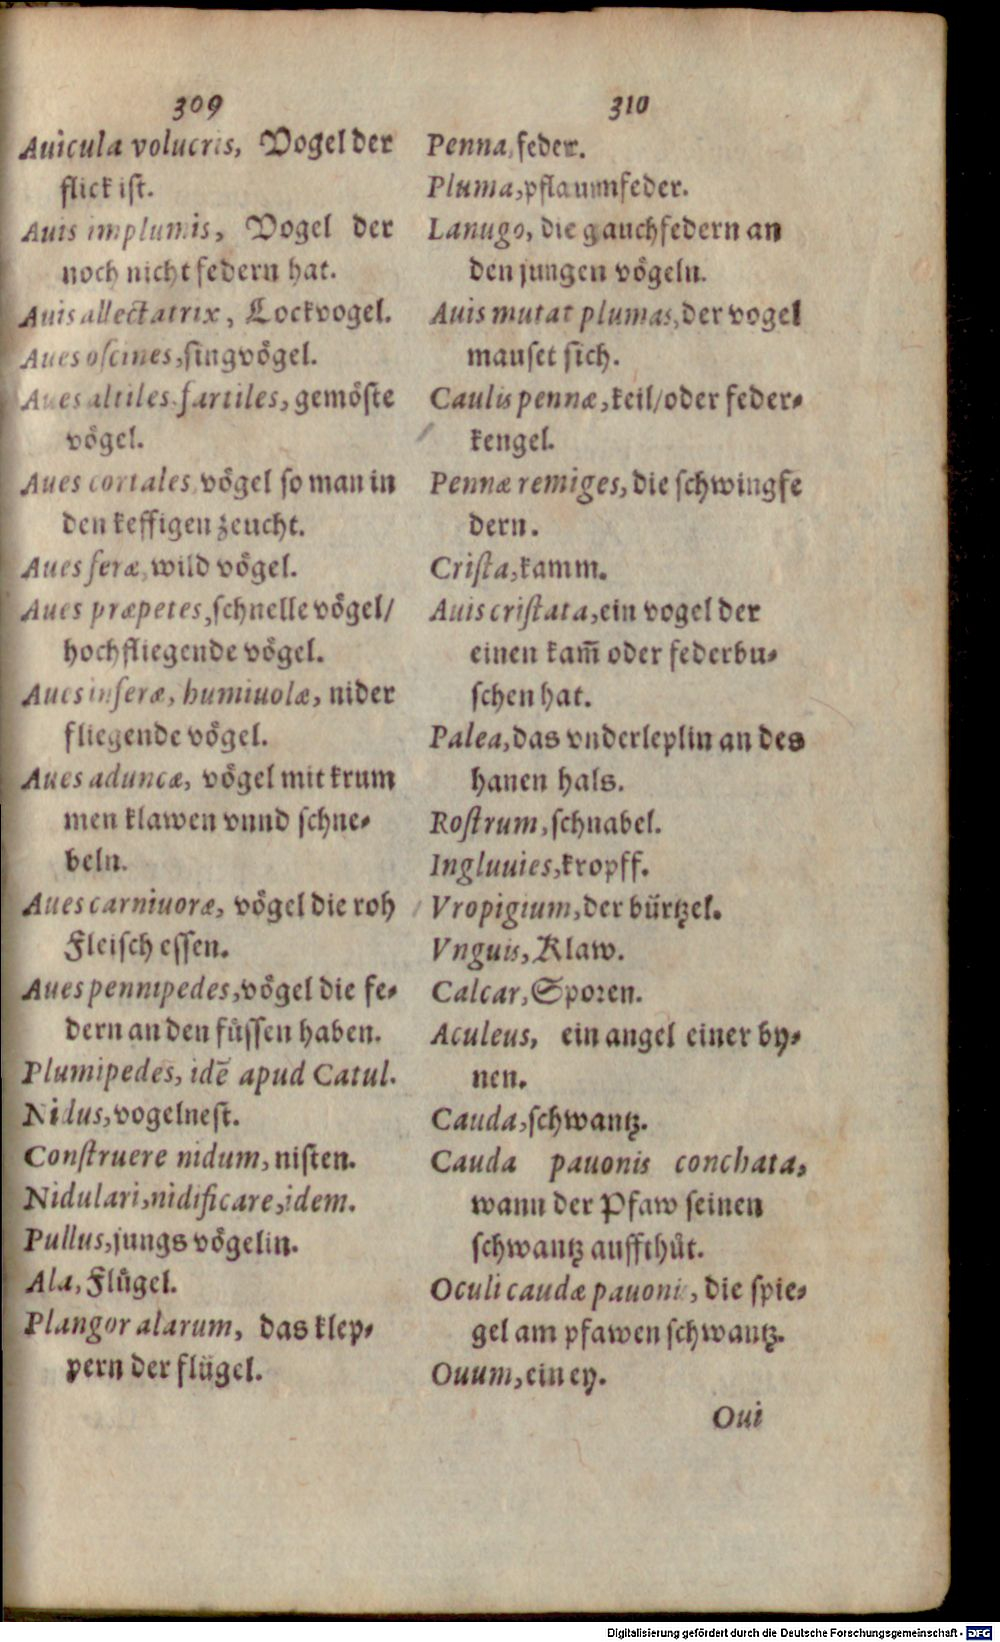 309
Auicula volucris, Vogel der
flick ist.
Auis implumis, Vogel der
noch nicht federn hat.
Auis allectatrix, Lockvogel.
Aues oscines, singvögel.
Aues altiles fartiles, gemöste
vögel.
Aues cortales, vögel so man in
den keffigen zeucht.
Aues feræ, wild vögel.
Aues præpetes, schnelle vögel/
hochfliegende vögel.
Aues inferæ, humiuolæ, nider
fliegende vögel.
Aues aduncæ, vögel mit krum
men klawen vnnd schne-
beln.
Aues carniuoræ, vögel die roh
Fleisch essen.
Aues pennipedes, vögel die fe-
dern an den füssen haben.
Plumipedes, idē apud Catul.
Nidus, vogelnest.
Construere nidum, nisten.
Nidulari, nidificare, idem.
Pullus, jungs vögelin.
Ala, Flügel.
Plangor alarum, das klep-
pern der flügel.
310
Penna, feder.
Pluma, pflaumfeder.
Lanugo, die gauchfedern an
den jungen vögeln.
Auis mutat plumas, der vogel
mauset sich.
Caulis pennæ, keil/oder feder-
kengel.
Pennæ remiges, die schwingfe
dern.
Crista, kamm.
Auis cristata, ein vogel der
einen kam̄ oder federbu-
schen hat.
Palea, das vnderleplin an des
hanen hals.
Rostrum, schnabel.
Ingluuies, kropff.
Vropigium, der bürtzel.
Vnguis, Klaw.
Calcar, Sporen.
Aculeus, ein angel einer by-
nen.
Cauda, schwantz.
Cauda pauonis conchata,
wann der Pfaw seinen
schwantz auffthůt.
Oculi caudæ pauonis, die spie-
gel am pfawen schwantz.
Ouum, ein ey.
Oui
Digitalisierung gefördert durch die Deutsche Forschungsgemeinschaft - DFG